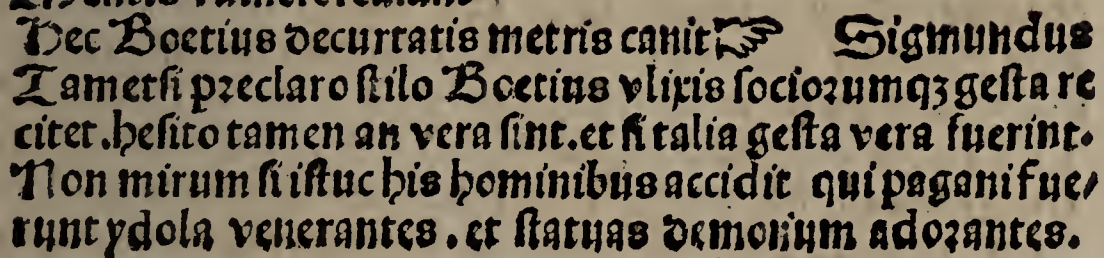 Hec Boetius decurtatis metris canit☞ Sigmundus
Tametsi preclaro stilo Boetius vlixis sociorumqꝫ gesta re
citet.hesito tamen an vera sint.et si talia gesta vera fuerint.
Non mirum si istuc his hominibus accidit qui pagani fue/
runt ydola venerantes.et statuas demonum adorantes.